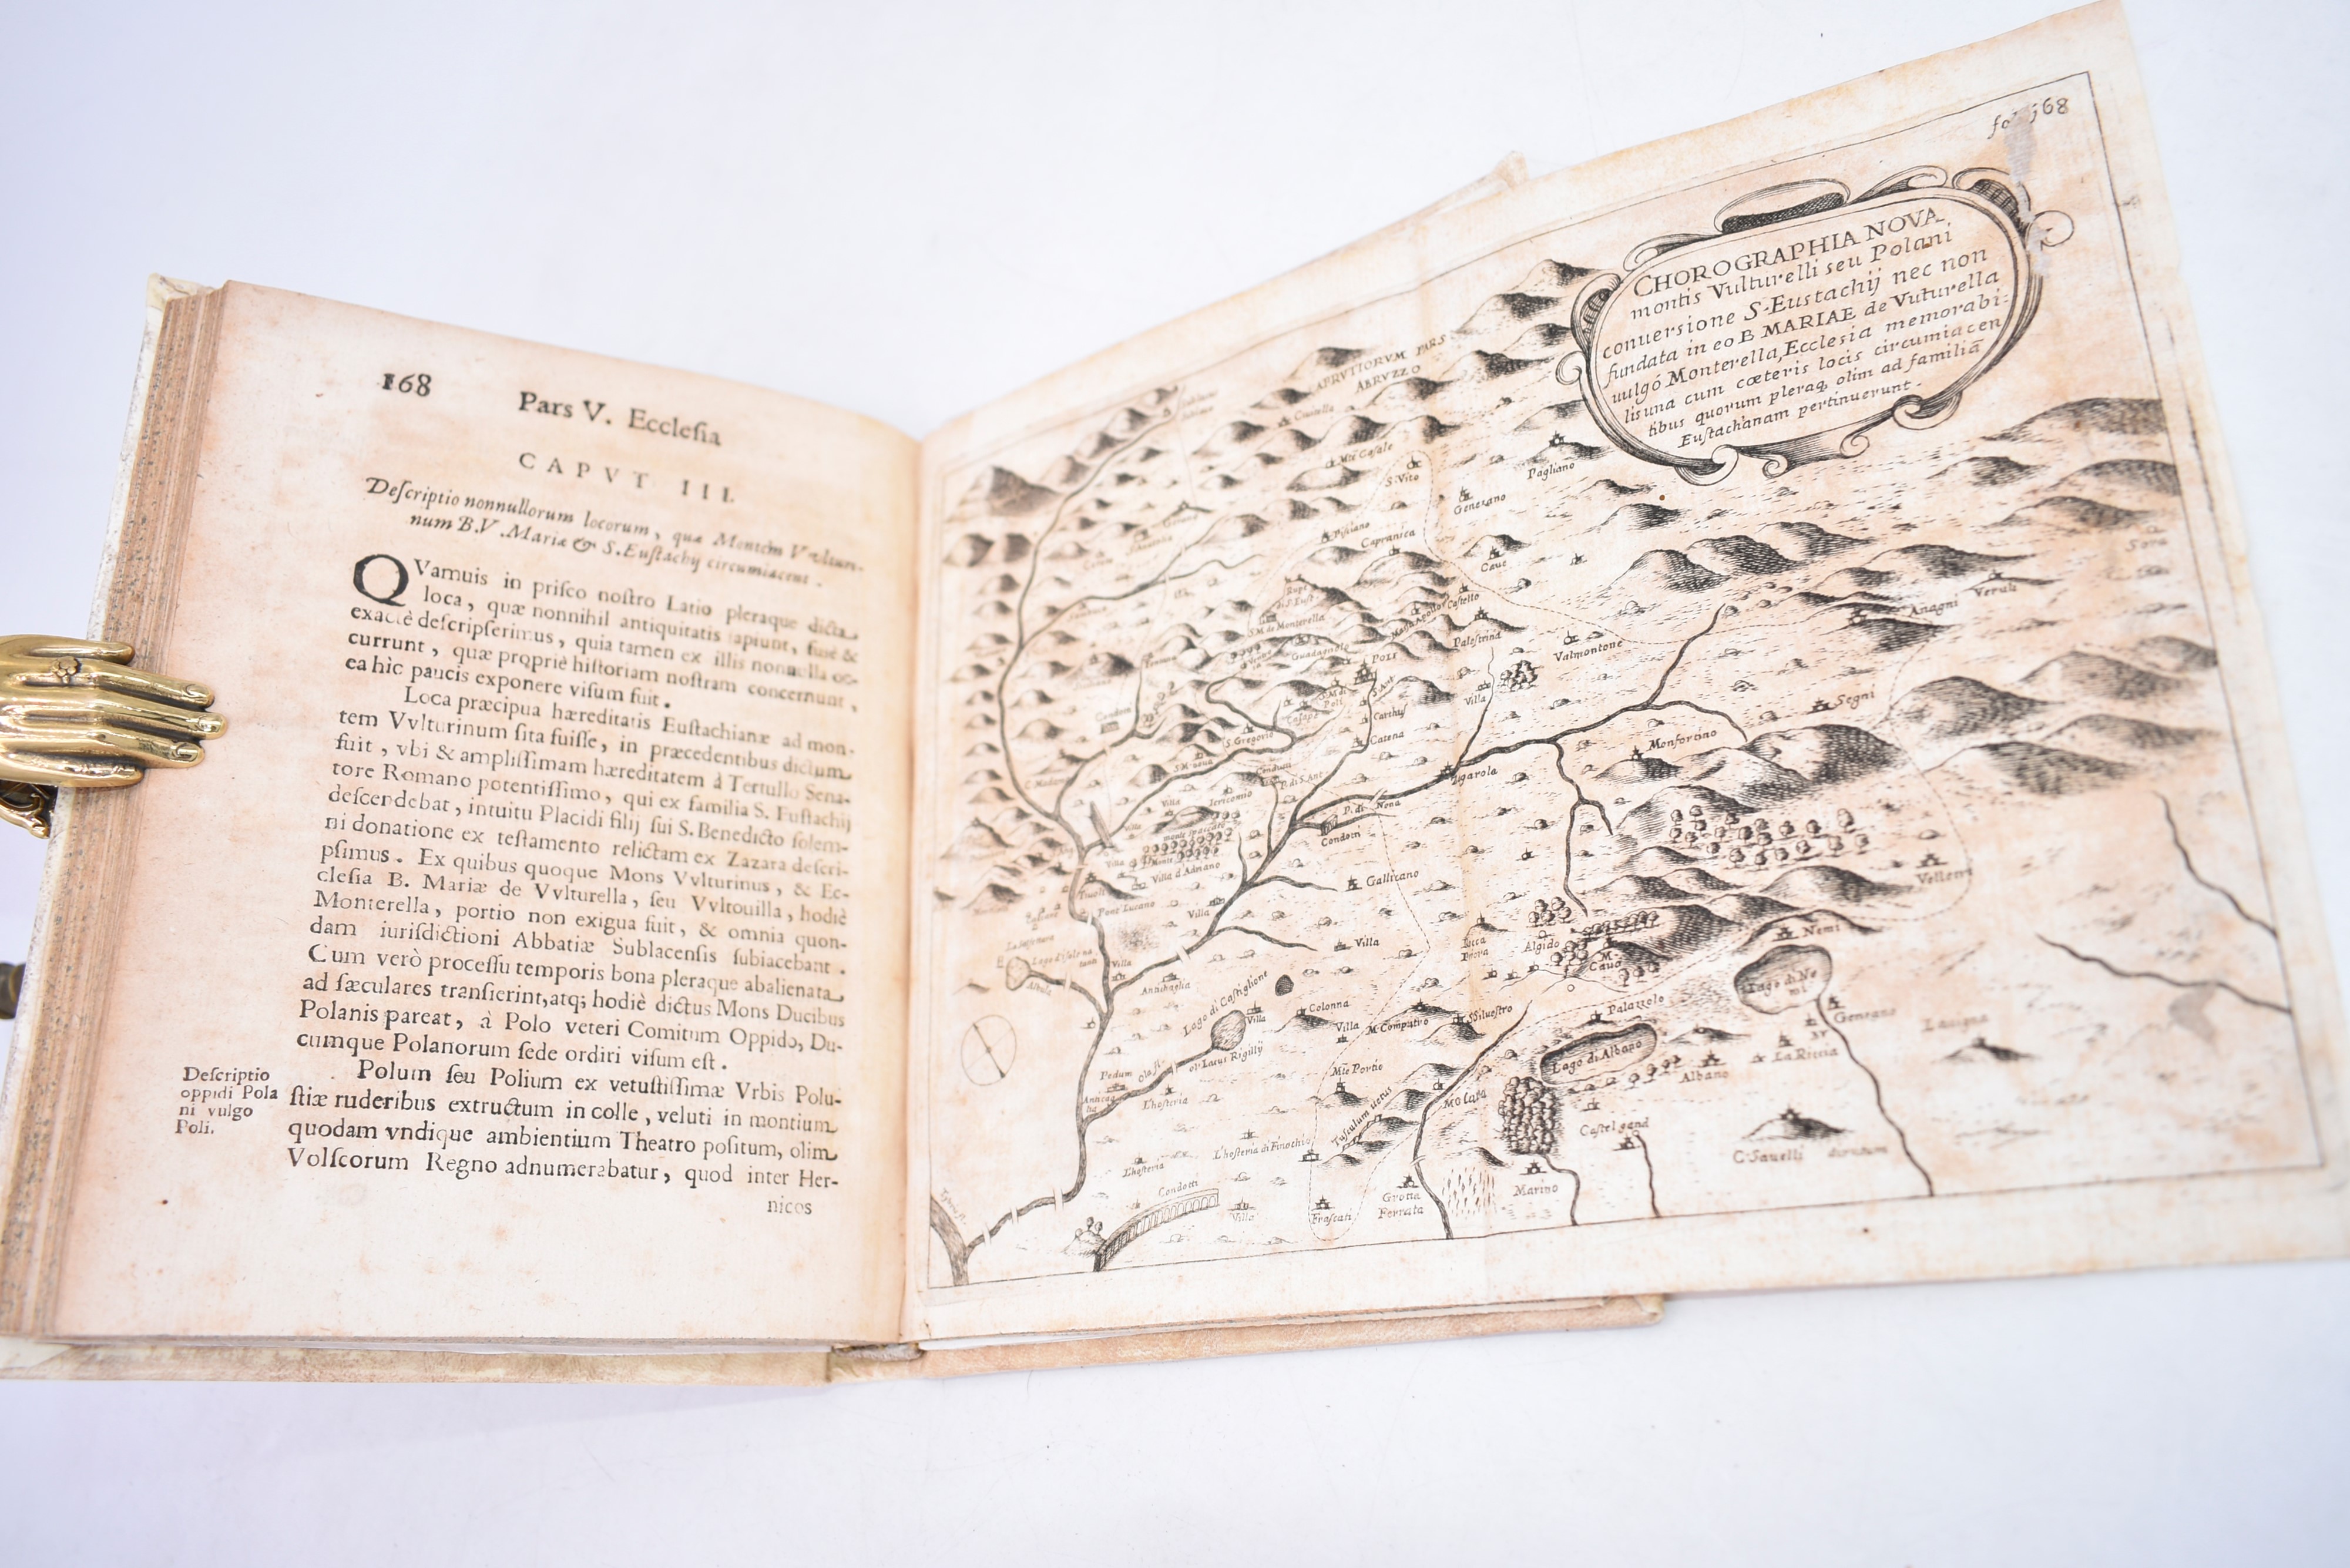 168
Pars V. Ecclesia
CAPVT III.
Descriptio nonnullorum locorum, quæ Montem Vultur-
num B.V. Mariæ & S. Eustachij circumiacent.
QVamuis in prisco nostro Latio pleraque dicta
loca, quæ nonnihil antiquitatis sapiunt, fusè &
exactè descripserimus, quia tamen ex illis nonnulla oc-
currunt, quæ propriè historiam nostram concernunt,
ea hìc paucis exponere visum fuit.
Loca præcipua hæreditatis Eustachianæ ad mon-
tem Vvlturinum sita fuisse, in præcedentibus dictum
fuit, vbi & amplissimam hæreditatem à Tertullo Sena-
tore Romano potentissimo, qui ex familia S. Eustachij
descendebat, intuitu Placidi filij sui S. Benedicto solem-
ni donatione ex testamento relictam ex Zazara descri-
psimus. Ex quibus quoque Mons Vvlturinus, & Ec-
clesia B. Mariæ de Vvlturella, seu Vvltouilla, hodiè
Monterella, portio non exigua fuit, & omnia quon-
dam iurisdictioni Abbatiæ Sublacensis subiacebant.
Cum verò processu temporis bona pleraque abalienata
ad sæculares transierint, atq; hodiè dictus Mons Ducibus
Polanis pareat, à Polo veteri Comitum Oppido, Du-
cumque Polanorum sede ordiri visum est.
Descriptio
oppidi Pola
ni vulgo
Poli.
Polum seu Polium ex vetustissimæ Vrbis Polu-
stiæ ruderibus extructum in colle, veluti in montium
quodam vndique ambientium Theatro positum, olim
Volscorum Regno adnumerabatur, quod inter Her-
nicos
168
CHOROGRAPHIA NOVA
montis Vulturelli seu Polani
conuersione S. Eustachij nec non
fundata in eo B MARIAE de Vuturella
uulgó Monterella, Ecclesia memorabi:
lis una cum cœteris locis circumiacen
tibus quorum pleraq olim ad familiã
Eustachianam pertinuerunt.
APRVTIORVM PARS
ABRVZZO
Mte Casale
S. Vito
Pagliano
Genezano
Pisiano
Capranica
Caue
Sora
Anagni
Veruli
Castello
S.M. de Monterella
Guadagnolo
Palestrina
Valmontone
Poli
Villa
Segni
S. Gregorio
Catena
Monfortino
Zagarola
P. di Nona
Condotti
Villa
Villa d Adriano
Tiuoli
Gallicano
Velletri
Pont Lucano
Villa
Villa
Algido
Nemi
M. Cauo
Lago di Nemi
Lago di Castiglione
Villa
Colonna
Villa
M. Compatro
S Siluestro
Palazzolo
Genzano
Lago di Albano
La Riccia
Albano
Mte Portio
L'hosteria
Tusculum uetus
Molara
Castel gand
C. Sauelli dirutum
L'hosteria di Finochio
L'hosteria
Condotti
Villa
Frascati
Grotta
Ferrata
Marino